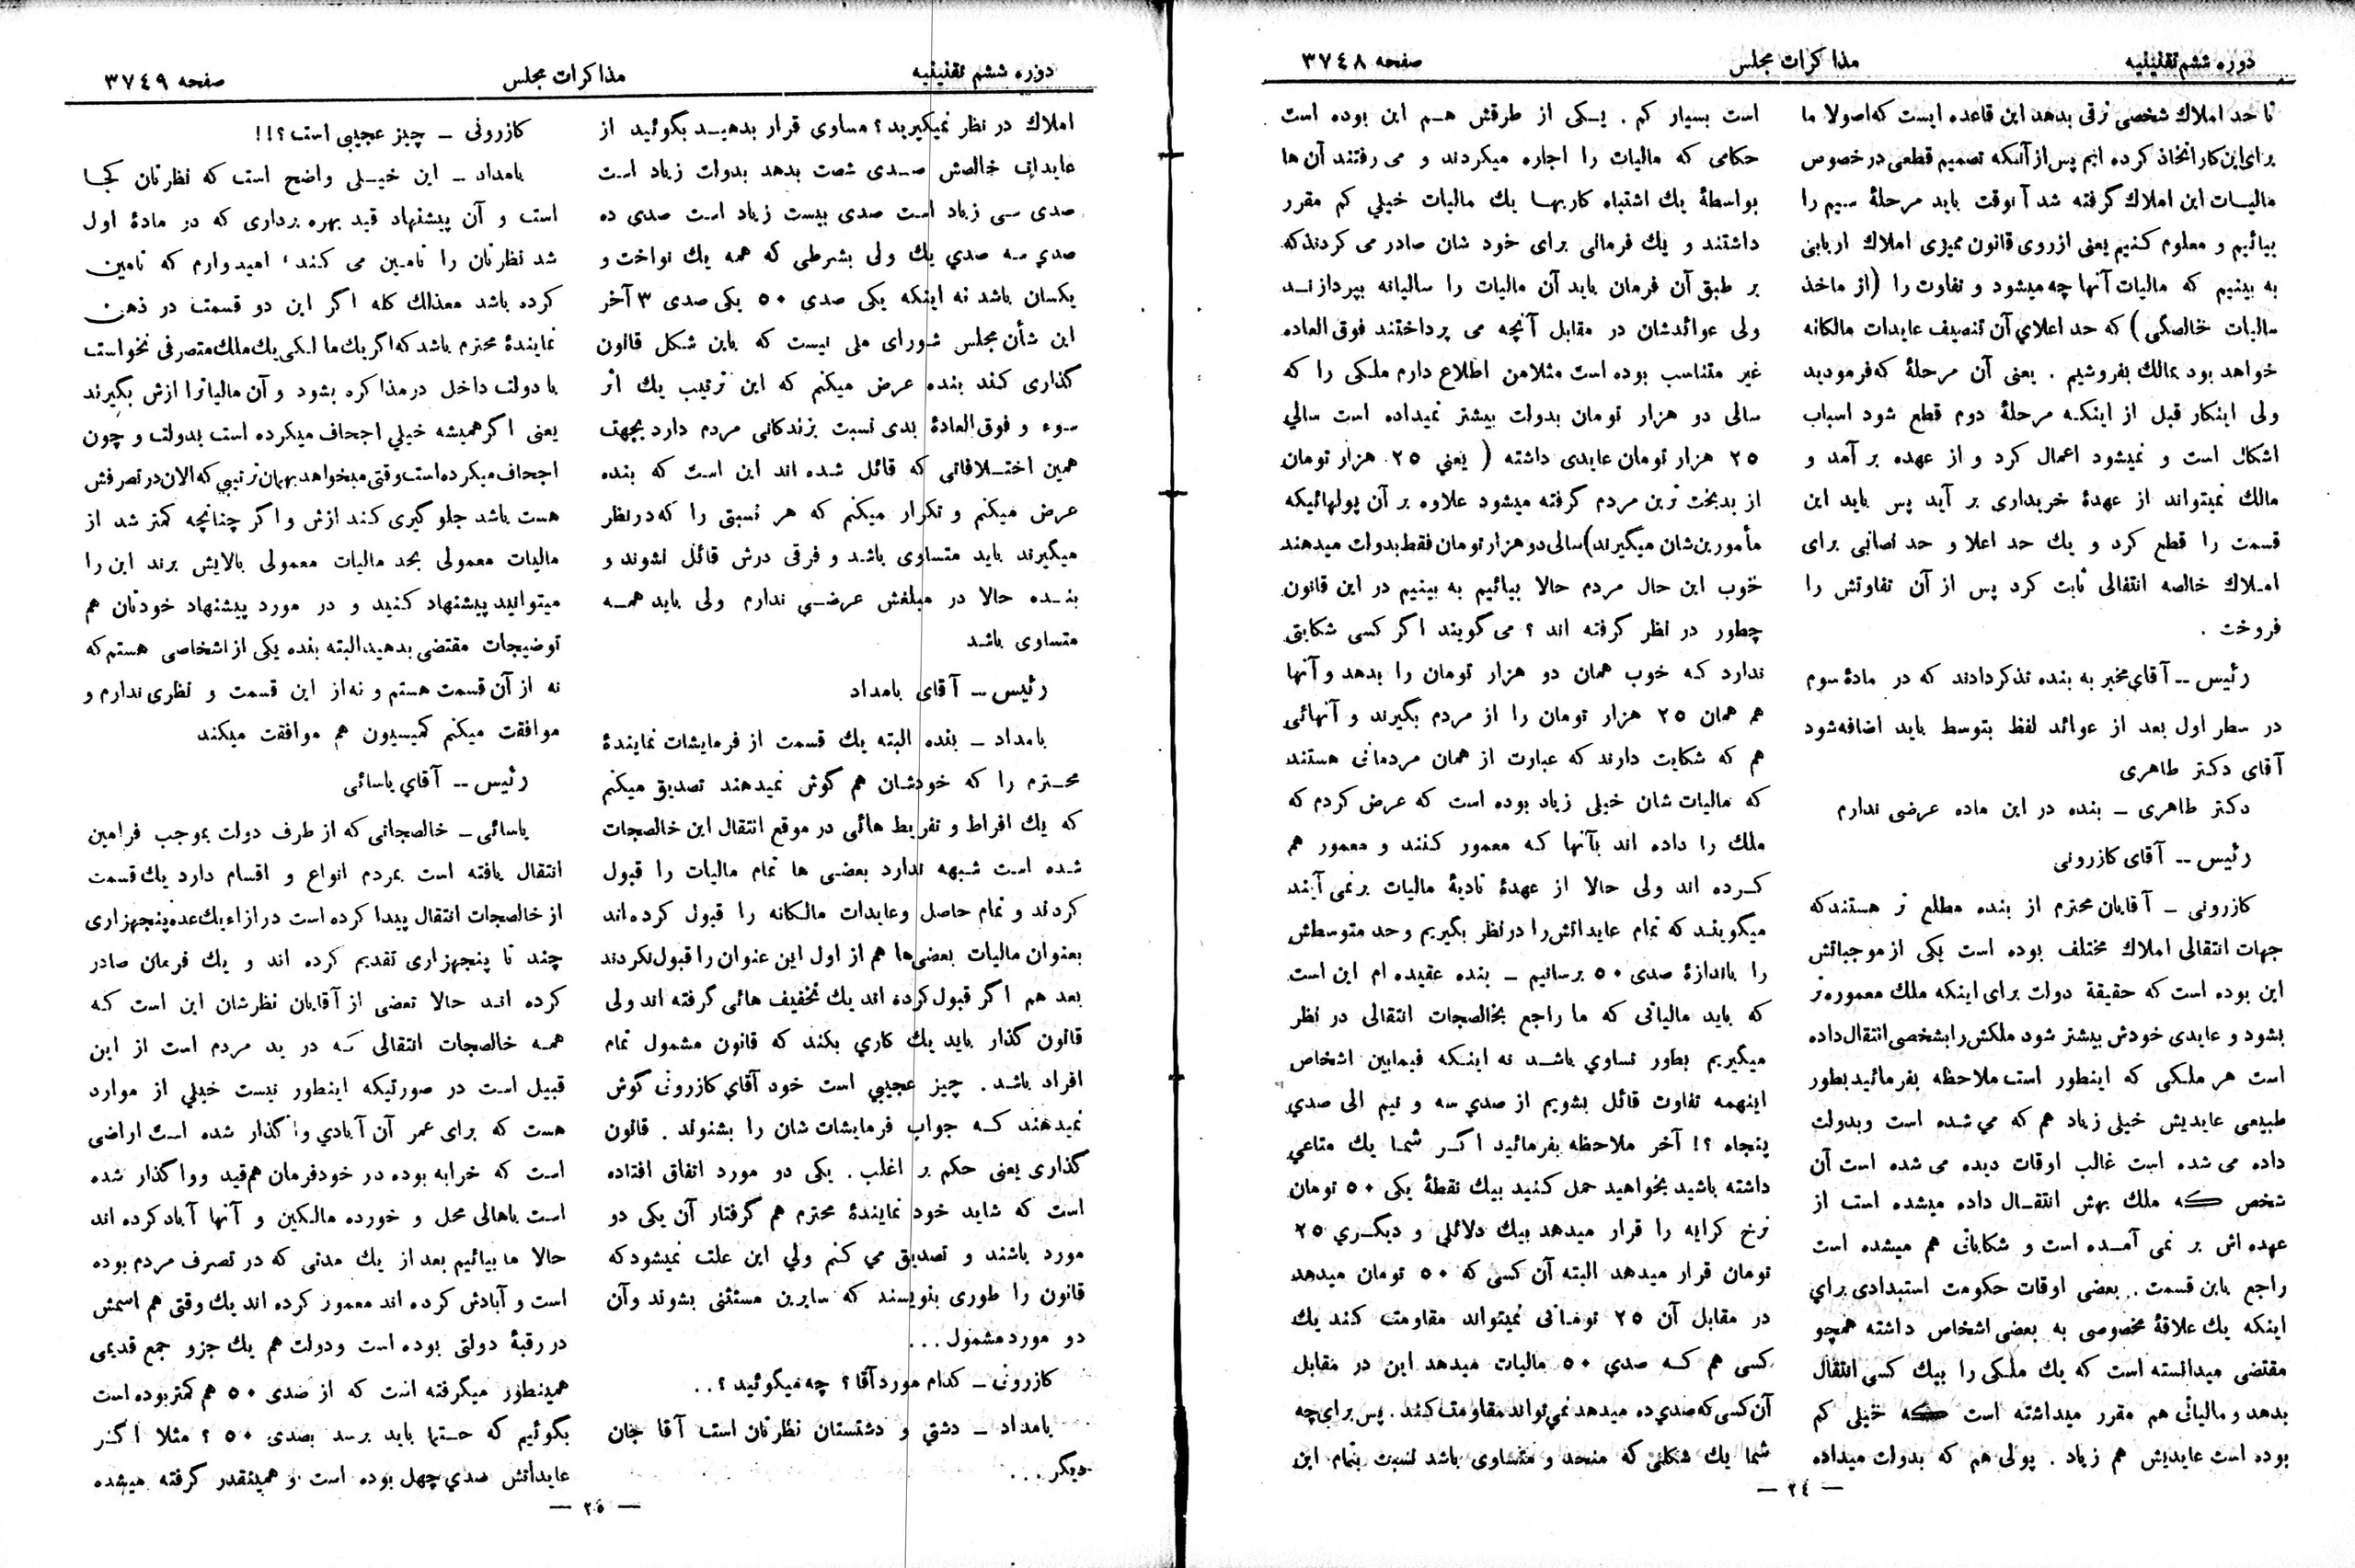 دوره ششم تقنینیه
مذاکرات مجلس
صفحه ۳۷۴۸
تا حد املاك شخصی ترقی بدهد این قاعده ایست که اصولا ما
برای این کار اتخاذ کرده ایم پس از آنکه تصمیم قطعی در خصوص
مالیات این املاك گرفته شد آنوقت باید مرحلهٔ سیم را
بیائیم و معلوم کنیم یعنی ازروی قانون ممیزی املاك اربابی
به بینیم که مالیات آنها چه میشود و تفاوت را (از ماخذ
مالیات خالصگی) که حد اعلاي آن تنصیف عایدات مالکانه
خواهد بود بمالك بفروشیم . یعنی آن مرحلهٔ که فرمودید
ولی اینکار قبل از اینکه مرحلهٔ دوم قطع شود اسباب
اشکال است و نمیشود اعمال کرد و از عهده بر آمد و
مالك نمیتواند از عهدهٔ خریداری بر آید پس باید این
قسمت را قطع کرد و یك حد اعلا و حد نصابی برای
املاك خالصه انتقالی ثابت کرد پس از آن تفاوتش را
فروخت .
رئیس -- آقاي مخبر به بنده تذکر دادند که در مادهٔ سوم
در سطر اول بعد از عوائد لفظ بتوسط باید اضافه شود
آقای دکتر طاهری
دکتر طاهری - بنده در این ماده عرضی ندارم
رئیس -- آقای کازرونی
کازرونی - آقایان محترم از بنده مطلع تر هستند که
جهات انتقالی املاك مختلف بوده است یکی از موجباتش
این بوده است که حقیقة دولت برای اینکه ملك معموره تر
بشود و عایدی خودش بیشتر شود ملکش را بشخصی انتقال داده
است هر ملکی که اینطور است ملاحظه بفرمائید بطور
طبیعی عایدیش خیلی زیاد هم که می شده است وبدولت
داده می شده است غالب اوقات دیده می شده است آن
شخص که ملك بهش انتقال داده میشده است از
عهده اش بر نمی آمده است و شکایاتی هم میشده است
راجع باین قسمت . بعضی اوقات حکومت استبدادی براي
اینکه یك علاقهٔ مخصوصی به بعضی اشخاص داشته همچو
مقتضی میدانسته است که یك ملکی را بیك کسی انتقال
بدهد و مالیاتی هم مقرر میداشته است که خیلی کم
بوده است عایدیش هم زیاد . پولی هم که بدولت میداده
است بسیار کم . یکی از طرقش هم این بوده است
حکامی که مالیات را اجاره میکردند و می رفتند آن ها
بواسطهٔ یك اشتباه کاریها یك مالیات خیلي کم مقرر
داشتند و یك فرمانی برای خود شان صادر می کردند که
بر طبق آن فرمان باید آن مالیات را سالیانه بپردازند
ولی عوائدشان در مقابل آنچه می پرداختند فوق العاده
غیر متناسب بوده است مثلا من اطلاع دارم ملکی را که
سالی دو هزار تومان بدولت بیشتر نمیداده است سالي
۲۵ هزار تومان عایدی داشته ( یعني ۲۵ هزار تومان
از بدبخت ترین مردم گرفته میشود علاوه بر آن پولهائیکه
مأمورین شان میگیرند) سالی دو هزار تومان فقط بدولت میدهند
خوب این حال مردم حالا بیائیم به بینیم در این قانون
چطور در نظر گرفته اند ؟ می گویند اگر کسی شکایتی
ندارد که خوب همان دو هزار تومان را بدهد و آنها
هم همان ۲۵ هزار تومان را از مردم بگیرند و آنهائی
هم که شکایت دارند که عبارت از همان مردمانی هستند
که مالیات شان خیلی زیاد بوده است که عرض کردم که
ملك را داده اند بآنها که معمور کنند و معمور هم
کرده اند ولی حالا از عهدهٔ تادیهٔ مالیات برنمی آیند
میگویند که تمام عایداتش را در نظر بگیریم وحد متوسطش
را باندازهٔ صدی ۵۰ برسانیم - بنده عقیده ام این است
که باید مالیاتی که ما راجع بخالصجات انتقالی در نظر
میگیریم بطور تساوي باشد نه اینکه فیمابین اشخاص
اینهمه تفاوت قائل بشویم از صدي سه و نیم الی صدي
پنجاه ؟! آخر ملاحظه بفرمائید اگر شما یك متاعي
داشته باشید بخواهید حمل کنید بیك نقطهٔ یکی ۵۰ تومان
نرخ کرایه را قرار میدهد بیك دلائلي و دیگري ۲۵
تومان قرار میدهد البته آن کسی که ۵۰ تومان میدهد
در مقابل آن ۲۵ تومانی نمیتواند مقاومت کند یك
کسی هم که صدي ۵۰ مالیات میدهد این در مقابل
آن کسی که صدي ده میدهد نمی تواند مقاومت کند . پس برای چه
شما یك شکلی که متحد و متساوی باشد نسبت بتمام این
— ۲۴ —
دوره ششم تقنینیه
مذاکرات مجلس
صفحه ۳۷۴۹
املاك در نظر نمیگیرید ؟ مساوی قرار بدهید بگوئید از
عایداتی خالصش صدی شصت بدهد بدولت زیاد است
صدی سی زیاد است صدی بیست زیاد است صدی ده
صدي سه صدي یك ولی بشرطی که همه یك نواخت و
یکسان باشد نه اینکه یکی صدی ۵۰ یکی صدی ۳ آخر
این شأن مجلس شورای ملی نیست که باین شکل قانون
گذاری کند بنده عرض میکنم که این ترتیب یك اثر
سوء و فوق العادهٔ بدی نسبت بزندکانی مردم دارد بجهت
همین اختلافاتی که قائل شده اند این است که بنده
عرض میکنم و تکرار میکنم که هر نسبتی را که در نظر
میگیرند باید متساوی باشد و فرقی درش قائل نشوند و
بنده حالا در مبلغش عرضي ندارم ولی باید همه
متساوی باشد
رئیس - آقای بامداد
بامداد - بنده البته یك قسمت از فرمایشات نمایندهٔ
محترم را که خودشان هم گوش نمیدهند تصدیق میکنم
که یك افراط و تفریط هائی در موقع انتقال این خالصجات
شده است شبهه ندارد بعضی ها تمام مالیات را قبول
کردند و تمام حاصل وعایدات مالکانه را قبول کرده اند
بعنوان مالیات بعضی ها هم از اول این عنوان را قبول نکردند
بعد هم اگر قبول کرده اند یك تخفیف هائی گرفته اند ولی
قانون گذار باید یك کاري بکند که قانون مشمول تمام
افراد باشد . چیز عجیبي است خود آقاي کازرونی گوش
نمیدهند که جواب فرمایشات شان را بشنوند . قانون
گذاری یعنی حکم بر اغلب . یکی دو مورد اتفاق افتاده
است که شاید خود نمایندهٔ محترم هم گرفتار آن یکی دو
مورد باشند و تصدیق می کنم ولي این علت نمیشود که
قانون را طوری بنویسند که سایرین مستثنی بشوند وآن
دو مورد مشمول ...
کازرونی - کدام مورد آقا ؟ چه میگوئید ؟ ..
بامداد - دشتي و دشتستان نظرتان است آقا جان
دیگر ...
کازرونی - چیز عجیبی است ؟!!
بامداد - این خیلی واضح است که نظرتان کجا
است و آن پیشنهاد قید بهره برداری که در مادهٔ اول
شد نظرتان را تامین می کند ، امیدوارم که تامین
کرده باشد معذلك کله اگر این دو قسمت در ذهن
نمایندهٔ محترم باشد که اگر یك مالکی یك ملك متصرفی نخواست
با دولت داخل در مذاکره بشود و آن مالیاترا ازش بگیرند
یعنی اگر همیشه خیلي اجحاف میکرده است بدولت و چون
اجحاف میکرده است وقتی میخواهد بهمان ترتیبی که الان در تصرفش
هست باشد جلوگیری کند ازش و اگر چنانچه کمتر شد از
مالیات معمولی بحد مالیات معمولی بالایش برند این را
میتوانید پیشنهاد کنید و در مورد پیشنهاد خودتان هم
توضیحات مقتضی بدهید البته بنده یکی از اشخاصی هستم که
نه از آن قسمت هستم و نه از این قسمت و نظری ندارم و
موافقت میکنم کمیسیون هم موافقت میکند
رئیس -- آقاي یاسائی
یاسائی - خالصجاتی که از طرف دولت بموجب فرامین
انتقال یافته است بمردم انواع و اقسام دارد یك قسمت
از خالصجات انتقال پیدا کرده است در ازاء یك عده پنجهزاری
چند تا پنجهزاری تقدیم کرده اند و یك فرمان صادر
کرده اند حالا بعضی از آقایان نظرشان این است که
همه خالصجات انتقالی که در ید مردم است از این
قبیل است در صورتیکه اینطور نیست خیلي از موارد
هست که برای عمر آن آبادي واگذار شده است اراضی
است که خرابه بوده در خود فرمان هم قید وواگذار شده
است باهالی محل و خورده مالکین و آنها آباد کرده اند
حالا ما بیائیم بعد از یك مدتی که در تصرف مردم بوده
است و آبادش کرده اند معمور کرده اند یك وقتی هم اسمش
در رقبهٔ دولتی بوده است ودولت هم یك جزو جمع قدیمی
همینطور میگرفته است که از صدی ۵۰ هم کمتر بوده است
بگوئیم که حتما باید برسد بصدی ۵۰ ؟ مثلا اگر
عایداتش صدي چهل بوده است و همینقدر گرفته میشده
— ۲۵ —